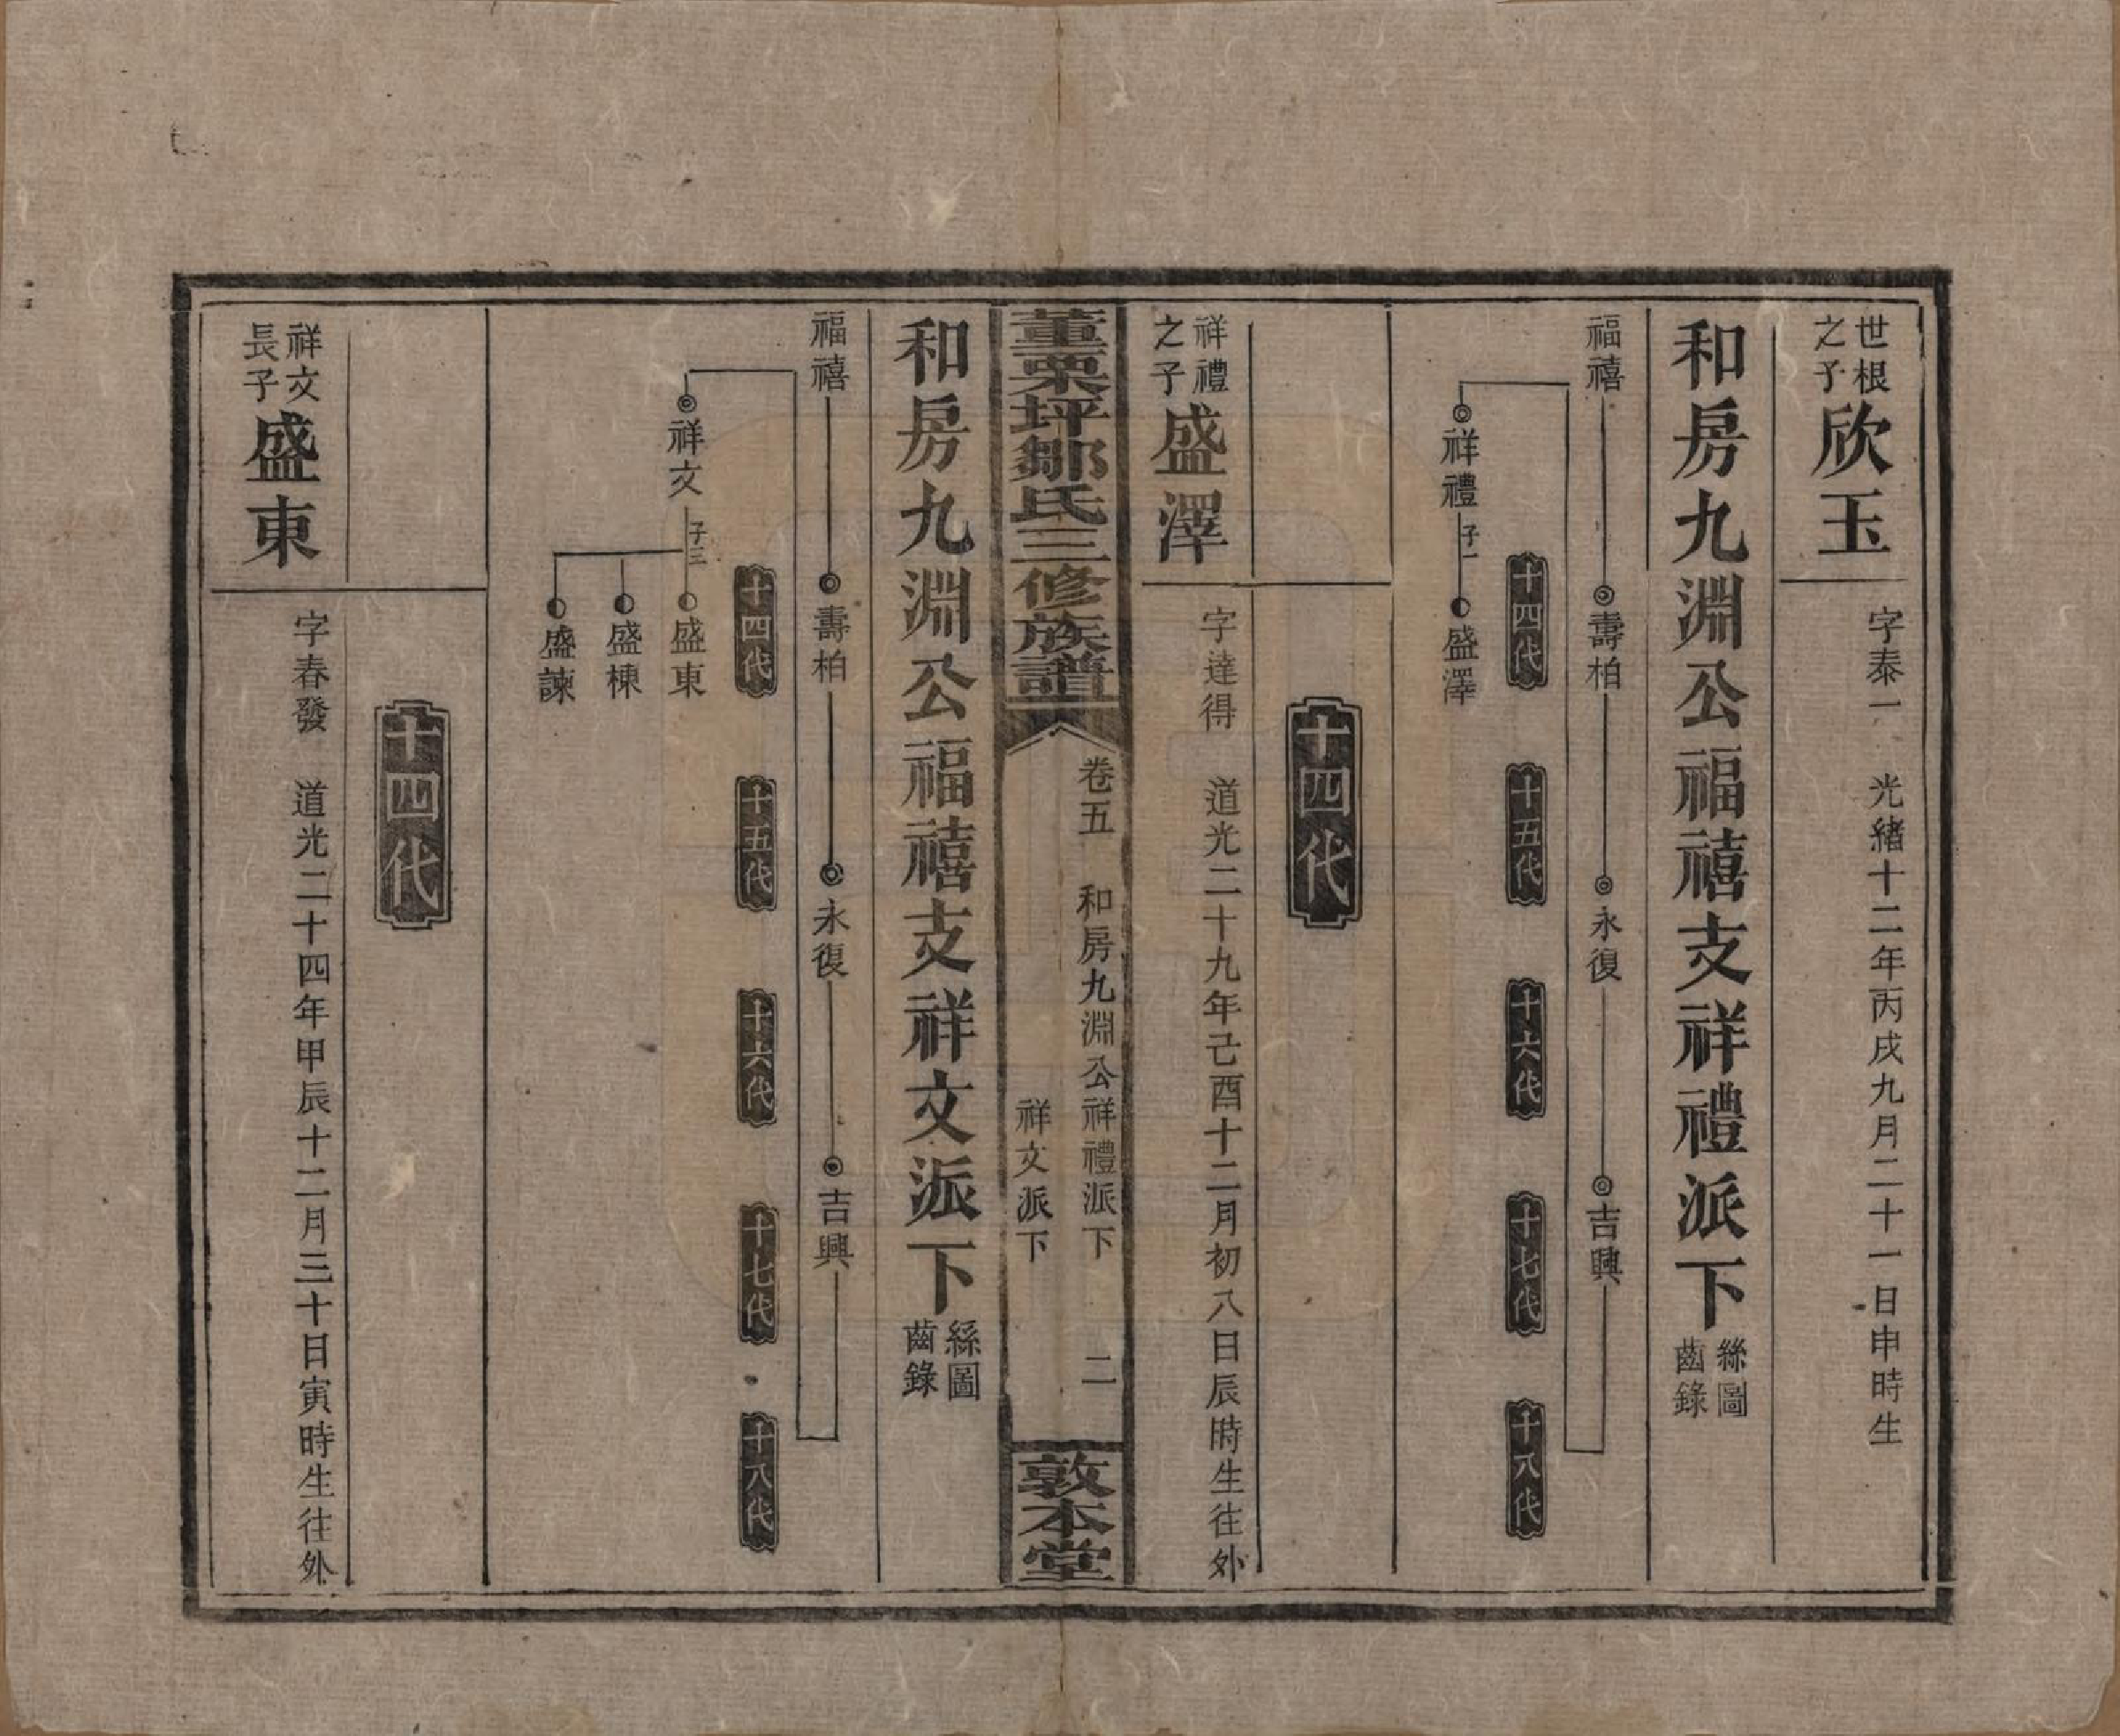 世根之子欣玉
字泰一　光緒十二年丙戌九月二十一日申時生
和房九淵公福禧支祥禮派下絲圖齒錄
福禧　壽柏　永復　吉興
十四代　十五代　十六代　十七代　十八代
祥禮　子一　盛澤
十四代
祥禮之子盛澤
字達得　道光二十九年己酉十二月初八日辰時生往外
董栗坪鄒氏三修族譜
卷五　和房九淵公祥禮派下　二
祥文派下
敦本堂
和房九淵公福禧支祥文派下絲圖齒錄
福禧　壽柏　永復　吉興
十四代　十五代　十六代　十七代　十八代
祥文　子三　盛東
盛棟
盛諫
十四代
祥文長子盛東
字春發　道光二十四年甲辰十二月三十日寅時生往外